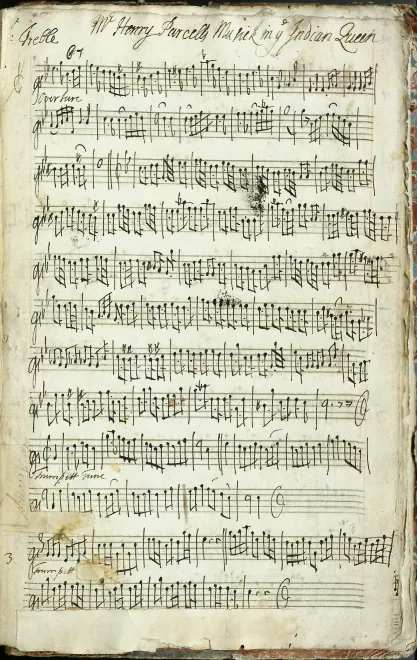 Treble
Mr Henry Purcells Musick in ye Indian Queen
Overture
Trumpett Tune
3
Trumpett